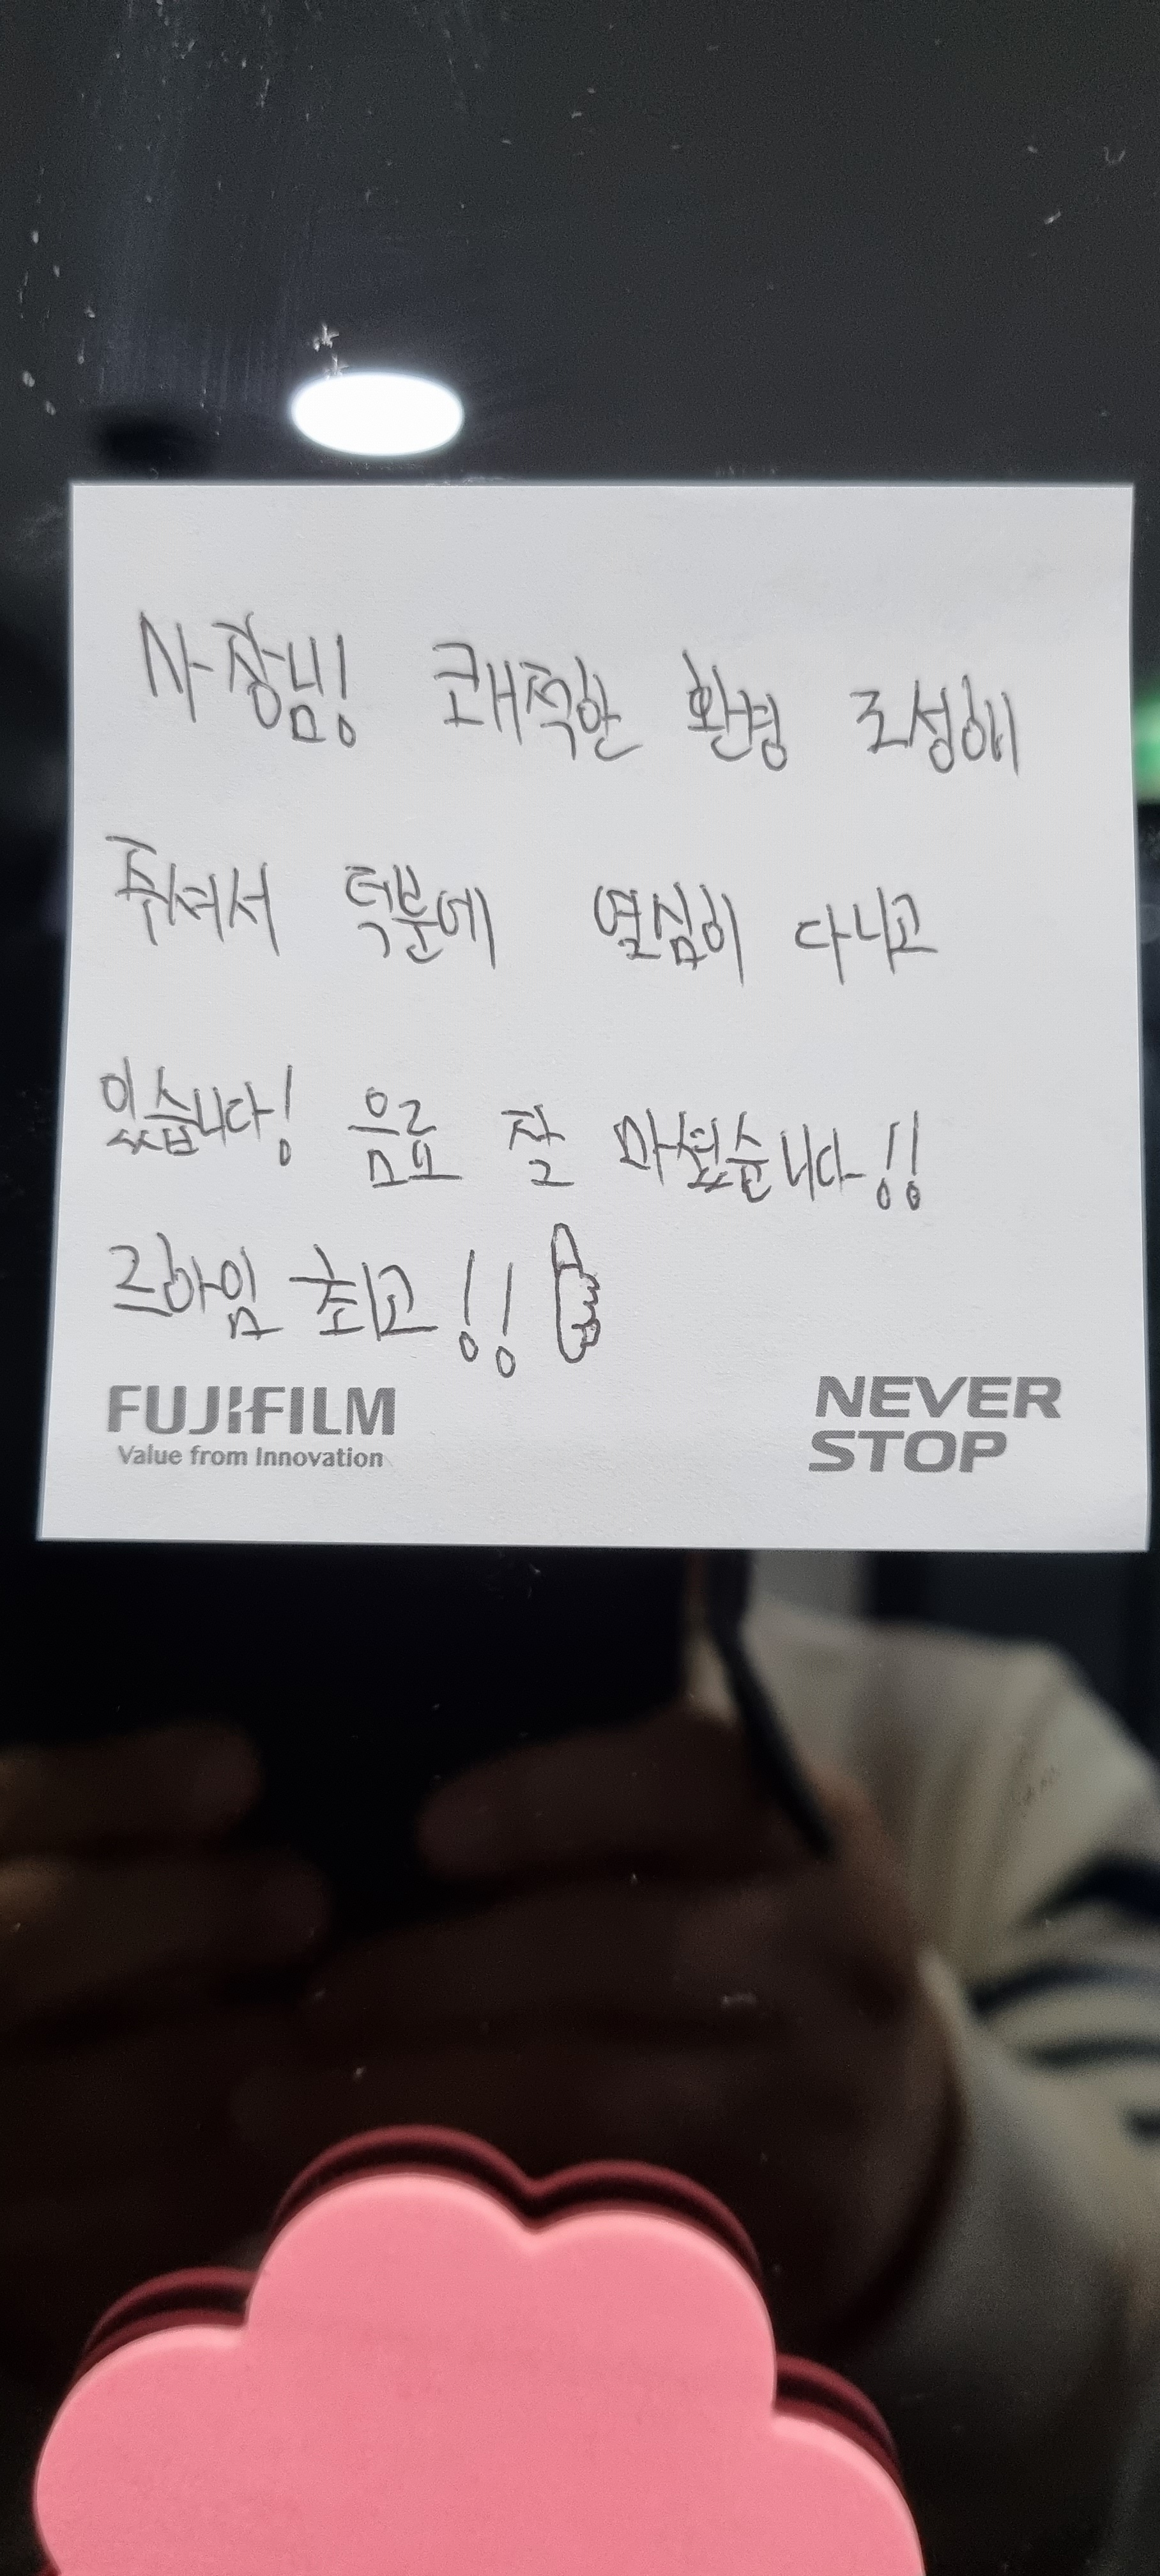 사장님! 쾌적한 환경 조성해
주셔서 덕분에 열심히 다니고
있습니다! 음료 잘 마셨습니다!!
르하임 최고!!
FUJIFILM
Value from Innovation
NEVER
STOP